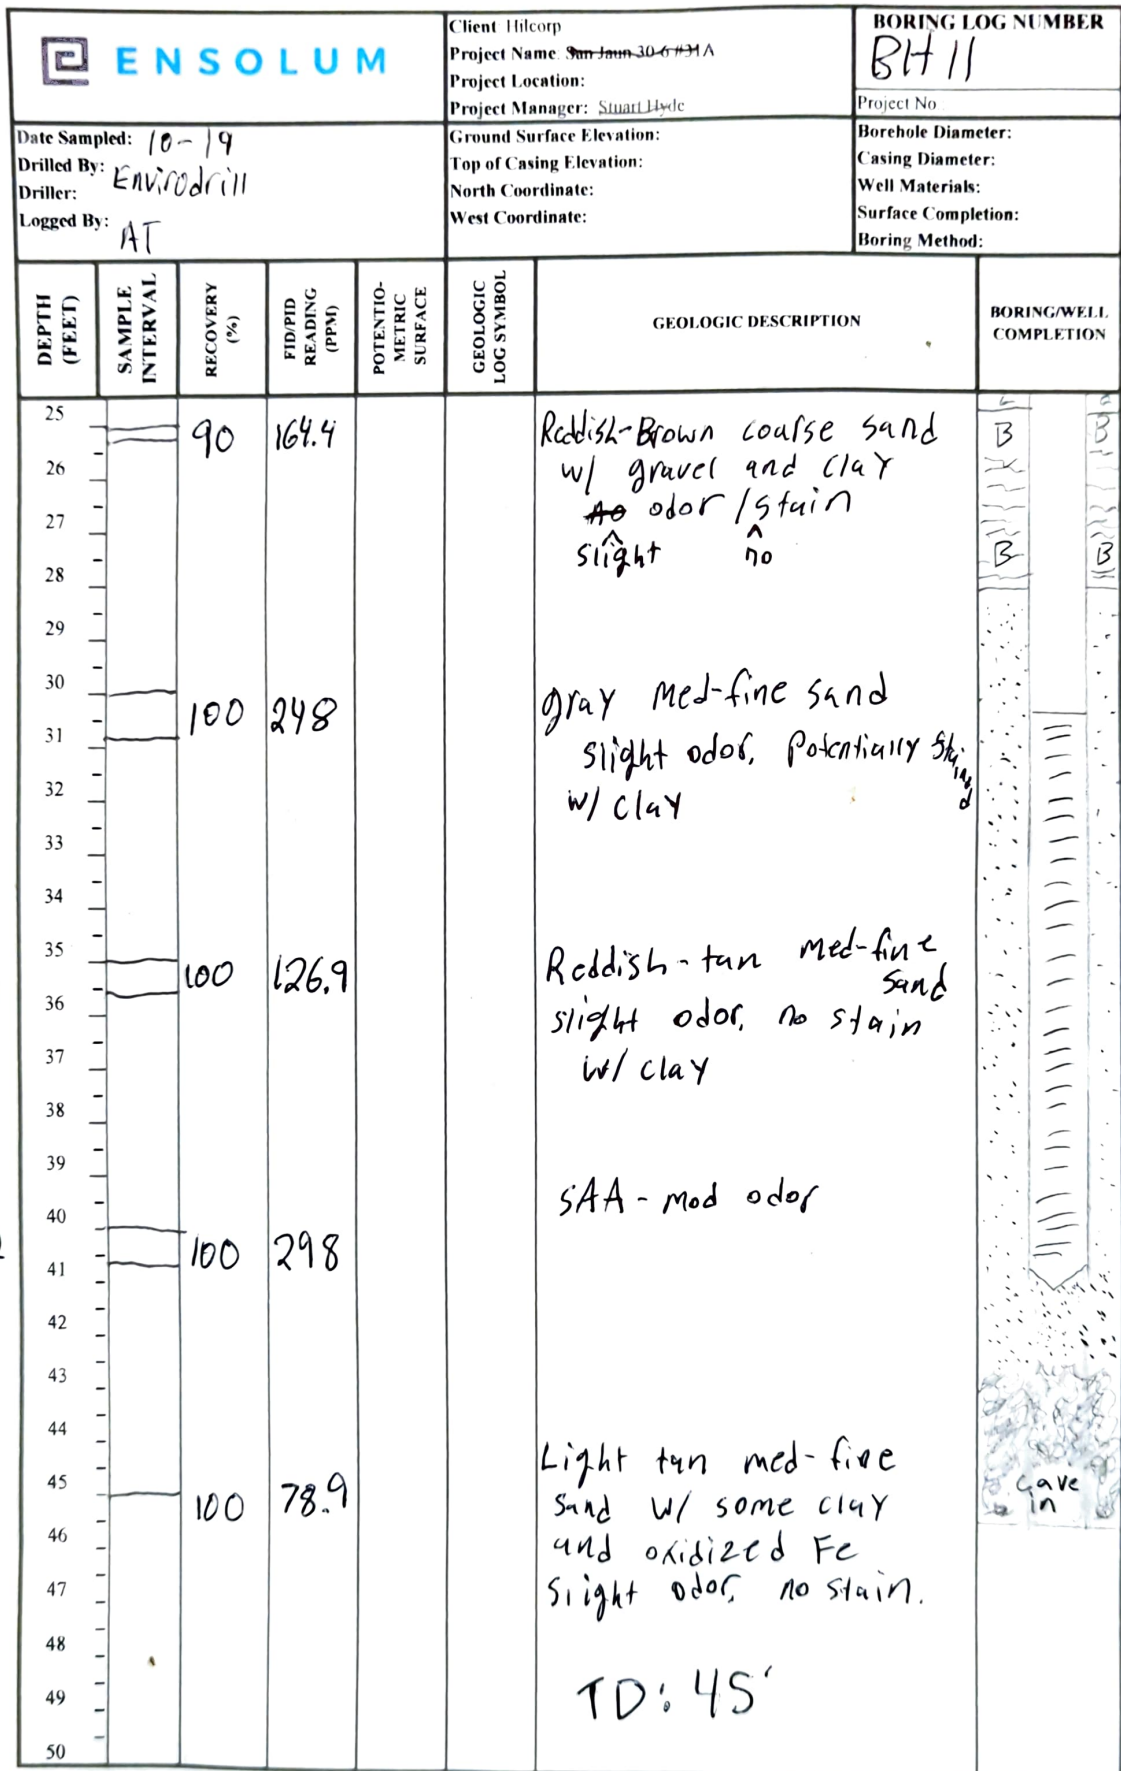 ENSOLUM
Client Hilcorp
Project Name San Jaun 30-6 #31A
Project Location:
Project Manager: Stuart Hyde
BORING LOG NUMBER
BH11
Project No
Date Sampled: 10-19
Drilled By: Envirodrill
Driller:
Logged By: AT
Ground Surface Elevation:
Top of Casing Elevation:
North Coordinate:
West Coordinate:
Borehole Diameter:
Casing Diameter:
Well Materials:
Surface Completion:
Boring Method:
DEPTH (FEET)
SAMPLE INTERVAL
RECOVERY (%)
FID/PID READING (PPM)
POTENTIO-METRIC SURFACE
GEOLOGIC LOG SYMBOL
GEOLOGIC DESCRIPTION
BORING/WELL COMPLETION
25
90 164.4 Reddish-Brown coarse sand B B
26 w/ gravel and clay
27 no odor / stain
slight no B B
28
29
30
100 248 gray med-fine sand
31 slight odor, Potentially stained
32 w/ clay
33
34
35
100 126.9 Reddish-tan med-fine
36 sand
slight odor, no stain
37 w/ clay
38
39
40 SAA - mod odor
100 298
41
42
43
44
Light tan med-fine
45 cave
100 78.9 sand w/ some clay in
46 and oxidized Fe
47 slight odor, no stain.
48
49 TD: 45'
50